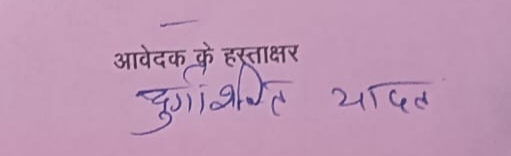 आवेदक के हस्ताक्षर
दुर्गाशक्ति यादव